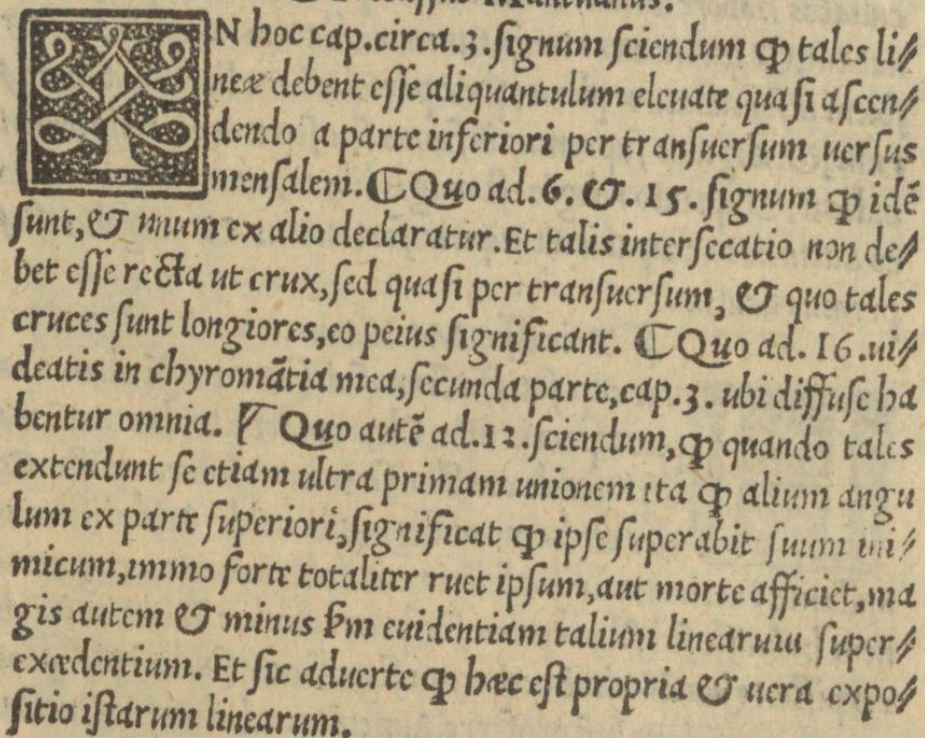 Mantuanus.
IN hoc cap.circa.3.ſignum ſciendum ꝙ tales li⸗
neæ debent eſſe aliquantulum eleuate quaſi aſcen⸗
dendo a parte inferiori per tranſuerſum uerſus
menſalem. ⸿Quo ad. 6. &. 15. ſignum ꝙ idē
ſunt, & unum ex alio declaratur. Et talis interſecatio non de⸗
bet eſſe recta ut crux, ſed quaſi per tranſuerſum, & quo tales
cruces ſunt longiores, eo peius ſignificant. ⸿Quo ad. 16.ui⸗
deatis in chyromātia mea, ſecunda parte, cap.3. ubi diffuſe ha
bentur omnia. ¶ Quo autē ad.12.ſciendum, ꝙ quando tales
extendunt ſe etiam ultra primam unionem ita ꝙ alium angu
lum ex parte ſuperiori, ſignificat ꝙ ipſe ſuperabit ſuum ini⸗
micum, immo forte totaliter ruet ipſum, aut morte afficiet, ma
gis autem & minus ẜm euidentiam talium linearum ſuper⸗
excedentium. Et ſic aduerte ꝙ hæc eſt propria & uera expo⸗
ſitio iſtarum linearum.